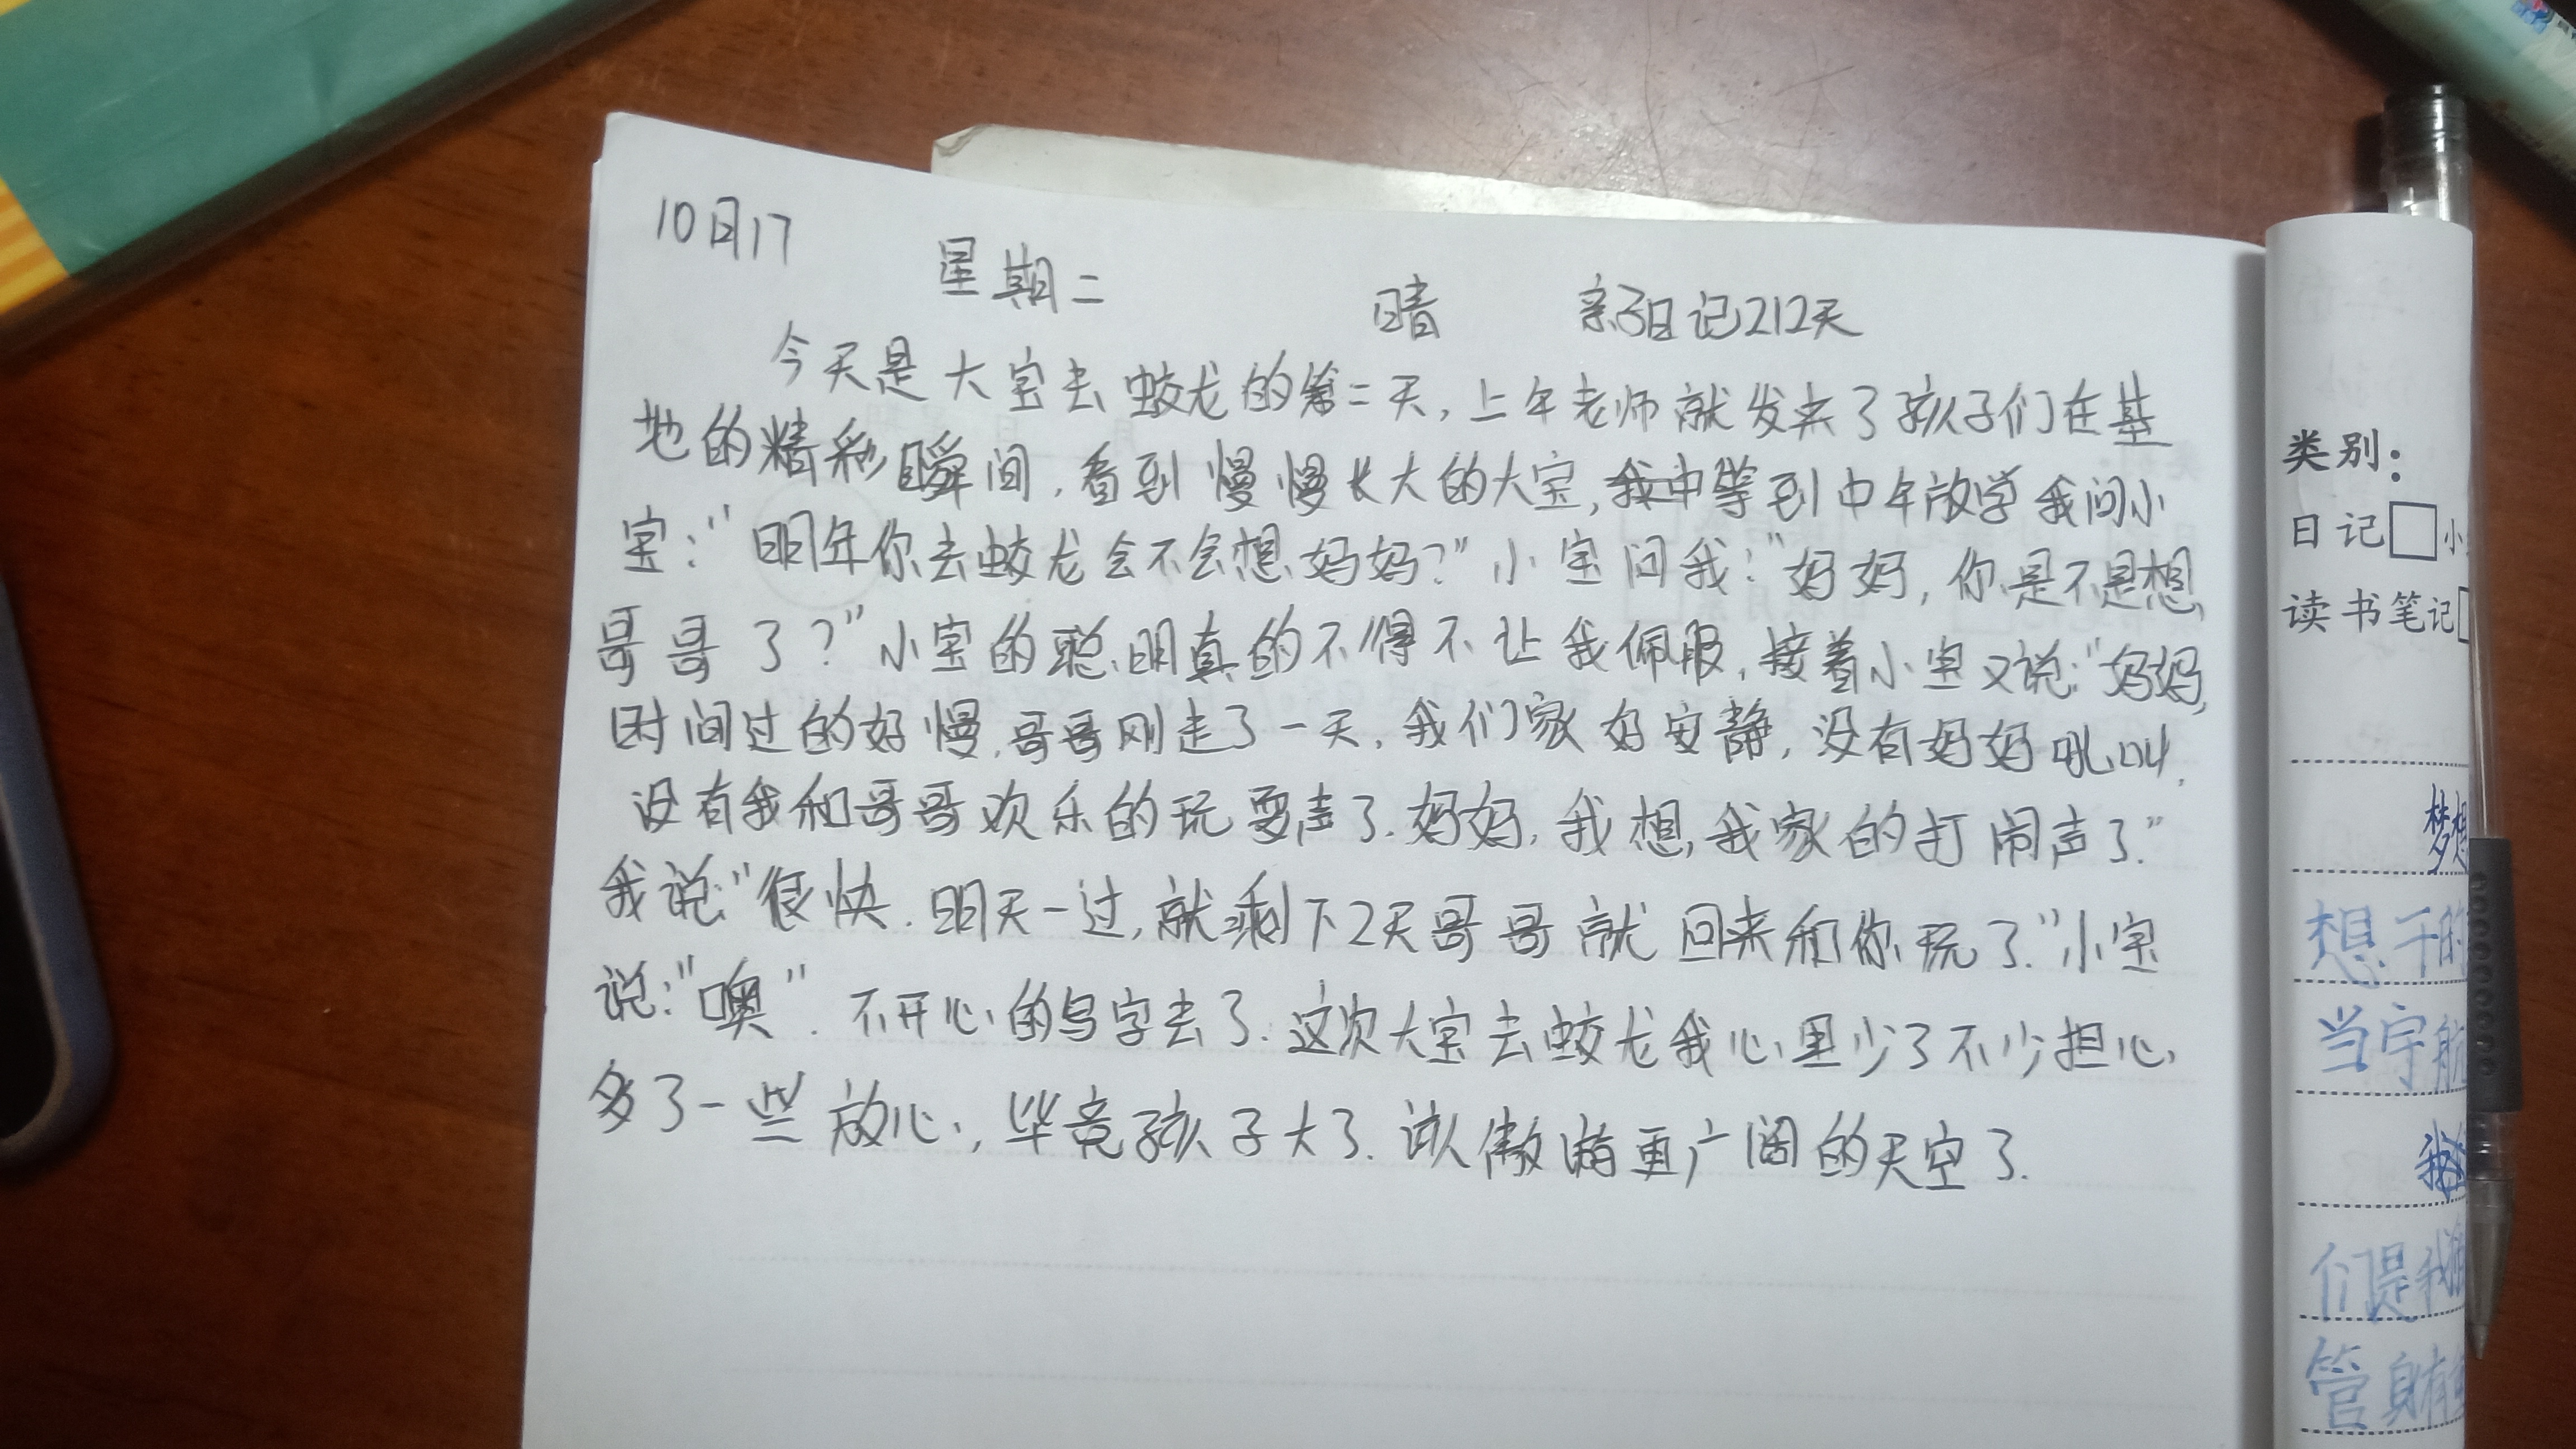 10日17 星期二 晴 亲子日记212天
今天是大宝去蛟龙的第二天,上午老师就发来了孩子们在基
地的精彩瞬间,看到慢慢长大的大宝,等到中午放学我问小
宝:"明年你去蛟龙会不会想妈妈?"小宝问我:"妈妈,你是不是想
哥哥了?"小宝的聪明真的不得不让我佩服,接着小宝又说:"妈妈,
时间过的好慢,哥哥刚走了一天,我们家好安静,没有妈妈吼叫,
没有我和哥哥欢乐的玩耍声了.妈妈,我想,我家的打闹声了."
我说:"很快.明天一过,就剩下2天哥哥就回来和你玩了."小宝
说:"噢".不开心的写字去了.这次大宝去蛟龙我心里少了不少担心,
多了一些放心,毕竟孩子大了.该人傲游更广阔的天空了.
类别:
日记 小
读书笔记
梦想
想干的
当宇航
们是我
管身有